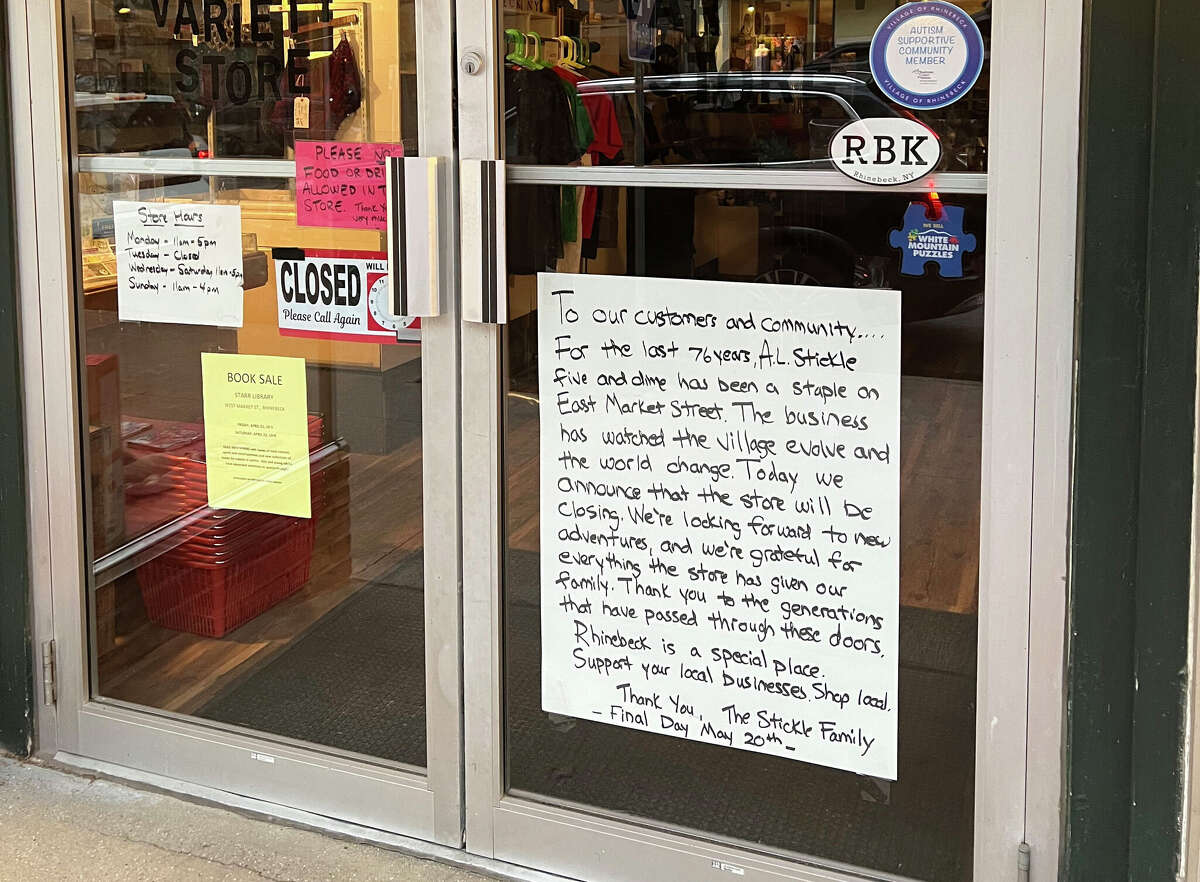 VARIETY
STORE
AUTISM
SUPPORTIVE
COMMUNITY
MEMBER
VILLAGE OF RHINEBECK
VILLAGE OF RHINEBECK
RBK
Rhinebeck, NY
WE SELL
WHITE
MOUNTAIN
PUZZLES
PLEASE NO
FOOD OR DRI
ALLOWED IN T
STORE. Thank Y
very much
Store Hours
Monday - 11am-5pm
Tuesday - Closed
Wednesday-Saturday 11am-5pm
Sunday - 11am-4pm
CLOSED
WILL
Please Call Again
BOOK SALE
STARR LIBRARY
WEST MARKET ST., RHINEBECK
To our customers and community....
For the last 76 years, A.L. Stickle
five and dime has been a staple on
East Market Street. The business
has watched the village evolve and
the world change. Today we
announce that the store will be
closing. We're looking forward to new
adventures, and we're grateful for
everything the store has given our
family. Thank you to the generations
that have passed through these doors.
Rhinebeck is a special place.
Support your local businesses. Shop local.
Thank You, The Stickle Family
- Final Day May 20th -